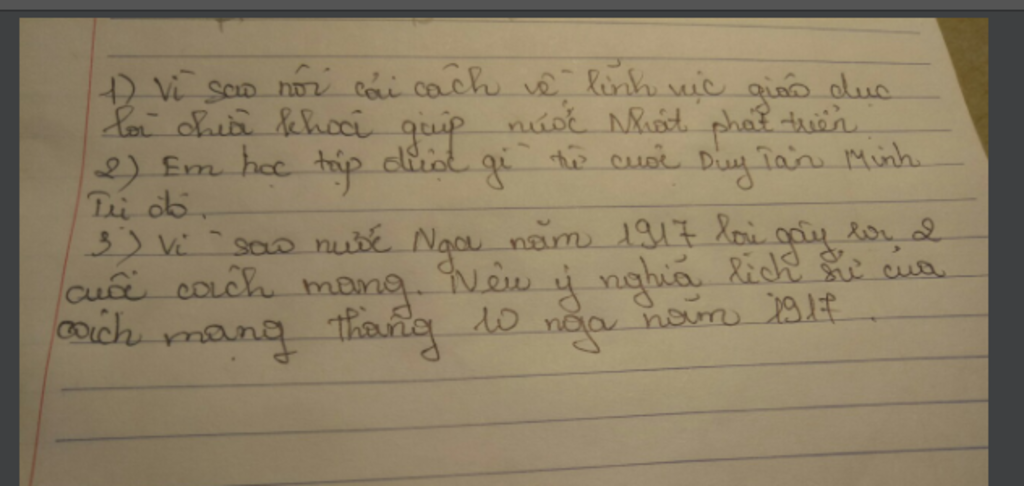 1) Vì sao nói cải cách về lĩnh vực giáo dục
là chìa khoá giúp nước Nhật phát triển
2) Em học tập được gì từ cuộc Duy Tân Minh
Trị đó.
3) Vì sao nước Nga năm 1917 lại gây ra 2
cuộc cách mạng. Nêu ý nghĩa lịch sử của
cách mạng tháng 10 nga năm 1917.